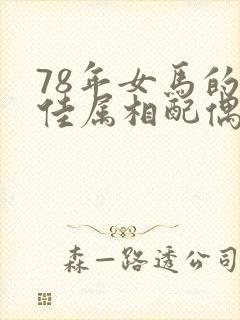 78年女馬的
佳属相配偶
森一路透公司